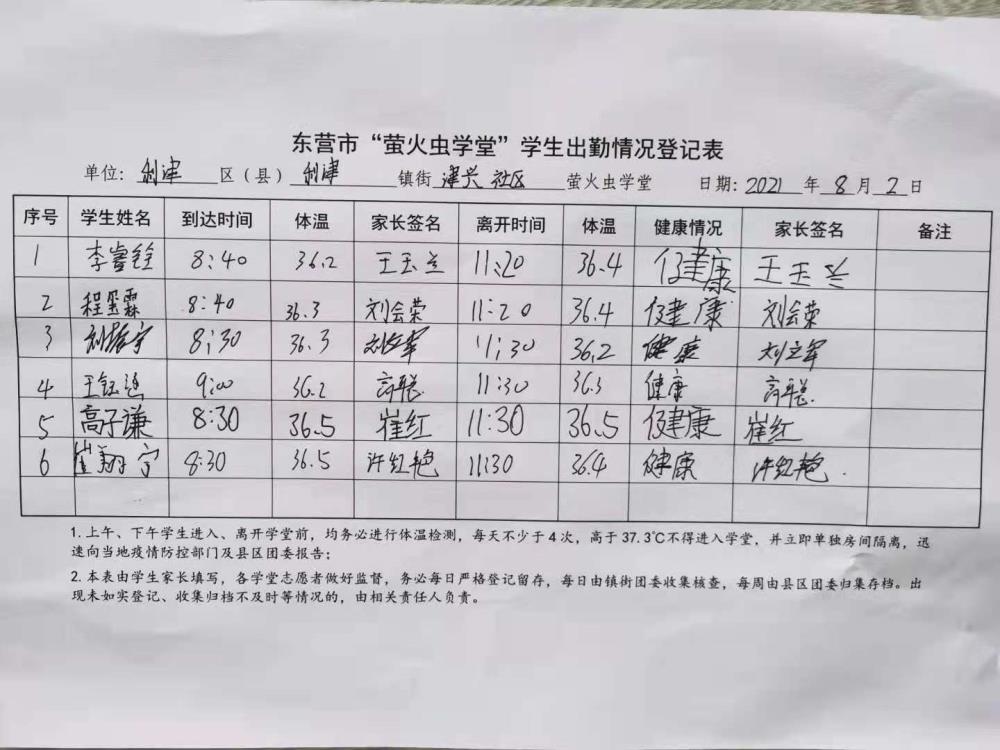 东营市“萤火虫学堂”学生出勤情况登记表
单位：利津 区（县）利津 镇街 津兴社区 萤火虫学堂 日期：2021 年 8 月 2 日
序号 学生姓名 到达时间 体温 家长签名 离开时间 体温 健康情况 家长签名 备注
1 8:40 36.2 王玉兰 11:20 36.4 健康 王玉兰
2 8:40 36.3 刘会荣 11:20 36.4 健康 刘会荣
3 8:30 36.3 11:30 36.2 健康 刘立军
4 9:00 36.2 高聪 11:30 36.3 健康 高聪
5 高子谦 8:30 36.5 崔红 11:30 36.5 健康 崔红
6 崔翔宇 8:30 36.5 许红艳 11:30 36.4 健康 许红艳.
1.上午、下午学生进入、离开学堂前，均务必进行体温检测，每天不少于4次，高于37.3℃不得进入学堂，并立即单独房间隔离，迅
速向当地疫情防控部门及县区团委报告；
2.本表由学生家长填写，各学堂志愿者做好监督，务必每日严格登记留存，每日由镇街团委收集核查，每周由县区团委归集存档。出
现未如实登记、收集归档不及时等情况的，由相关责任人负责。